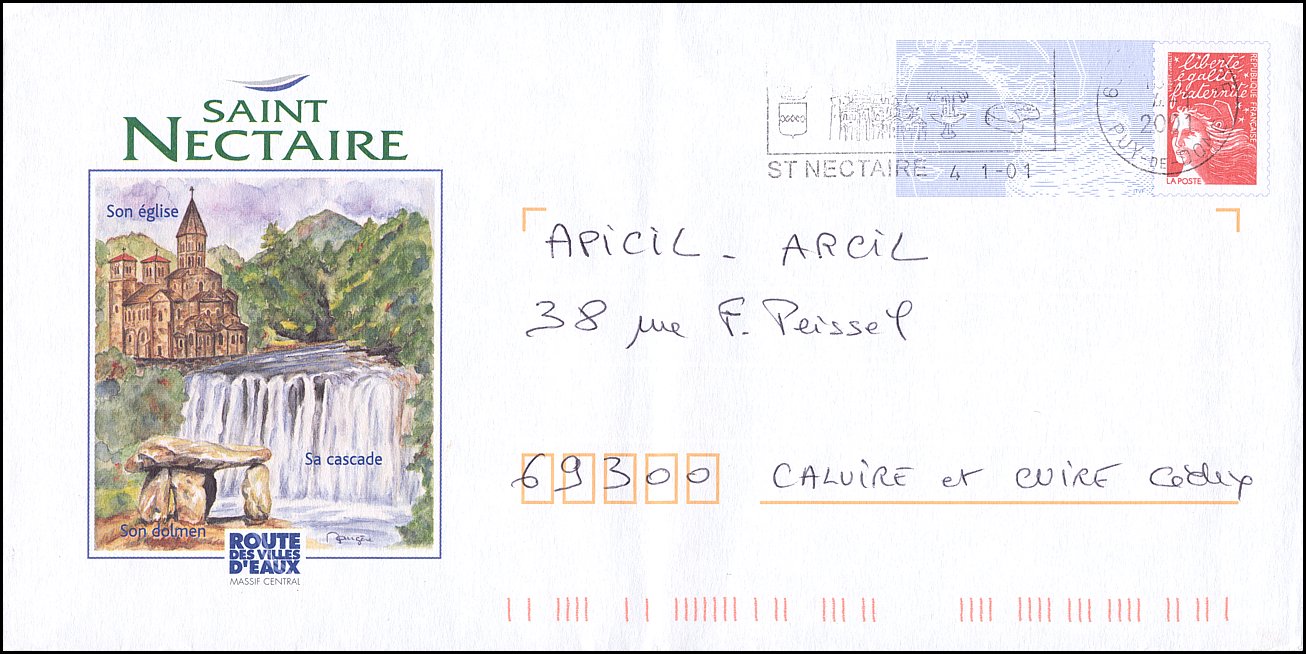 SAINT
NECTAIRE
Son église
Sa cascade
Son dolmen
ROUTE
DES VILLES
D'EAUX
MASSIF CENTRAL
ST NECTAIRE 4 1-01
2001
PUY-DE-DOME
liberté
égalité
fraternité
REPUBLIQUE FRANÇAISE
LA POSTE
APICIL - ARCIL
38 rue F. Peissel
69300 CALUIRE et CUIRE Cedex